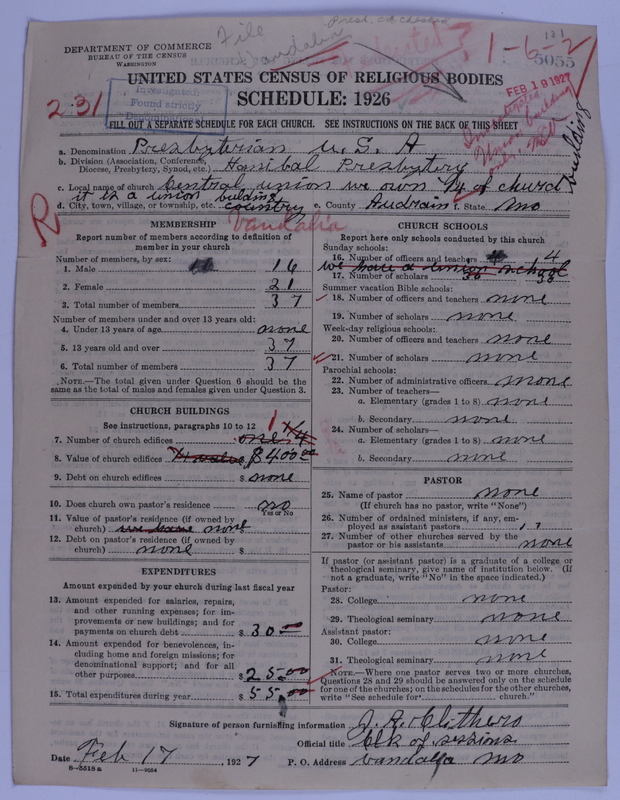 File
Vandalia
Presb. ch checked
1-6-2
131
5055
DEPARTMENT OF COMMERCE
BUREAU OF THE CENSUS
WASHINGTON
UNITED STATES CENSUS OF RELIGIOUS BODIES
SCHEDULE: 1926
FEB 19 1927
2-31
Found strictly
FILL OUT A SEPARATE SCHEDULE FOR EACH CHURCH. SEE INSTRUCTIONS ON THE BACK OF THIS SHEET
Union building
a. Denomination Presbytrian U. S. A
b. Division (Association, Conference, Diocese, Presbytery, Synod, etc.) Hanibal Presbytery
c. Local name of church Central union we own 1/4 of church building
it is a union building
d. City, town, village, or township, etc. country e. County Audrain f. State Mo
Vandalia
R
MEMBERSHIP
Report number of members according to definition of
member in your church
Number of members, by sex:
1. Male 16
2. Female 21
3. Total number of members 37
Number of members under and over 13 years old:
4. Under 13 years of age none
5. 13 years old and over 37
6. Total number of members 37
NOTE.—The total given under Question 6 should be the
same as the total of males and females given under Question 3.
CHURCH BUILDINGS
See instructions, paragraphs 10 to 12
1 1/4
7. Number of church edifices one 1/4
8. Value of church edifices $400.00
9. Debt on church edifices $ none
10. Does church own pastor's residence no
Yes or No
11. Value of pastor's residence (if owned by
church) we have none $
12. Debt on pastor's residence (if owned by
church) none $
EXPENDITURES
Amount expended by your church during last fiscal year
13. Amount expended for salaries, repairs,
and other running expenses; for im-
provements or new buildings; and for
payments on church debt $ 30.00
14. Amount expended for benevolences, in-
cluding home and foreign missions; for
denominational support; and for all
other purposes $ 25.00
15. Total expenditures during year $ 55.00
CHURCH SCHOOLS
Report here only schools conducted by this church
Sunday schools:
16. Number of officers and teachers 4 4
we have a union school
17. Number of scholars 38 38
Summer vacation Bible schools:
18. Number of officers and teachers none
19. Number of scholars none
Week-day religious schools:
20. Number of officers and teachers none
21. Number of scholars none
Parochial schools:
22. Number of administrative officers none
23. Number of teachers—
a. Elementary (grades 1 to 8) none
b. Secondary none
24. Number of scholars—
a. Elementary (grades 1 to 8) none
b. Secondary none
PASTOR
25. Name of pastor none
(If church has no pastor, write "None")
26. Number of ordained ministers, if any, em-
ployed as assistant pastors
27. Number of other churches served by the
pastor or his assistants none
If pastor (or assistant pastor) is a graduate of a college or
theological seminary, give name of institution below. (If
not a graduate, write "No" in the space indicated.)
Pastor:
28. College none
29. Theological seminary none
Assistant pastor:
30. College none
31. Theological seminary none
NOTE.—Where one pastor serves two or more churches,
Questions 28 and 29 should be answered only on the schedule
for one of the churches; on the schedules for the other churches,
write "See schedule for church."
Signature of person furnishing information J. R. Clithero
Official title Clk of sessions
Date Feb 17, 1927 P. O. Address Vandalia Mo
8-5518a 11-9054